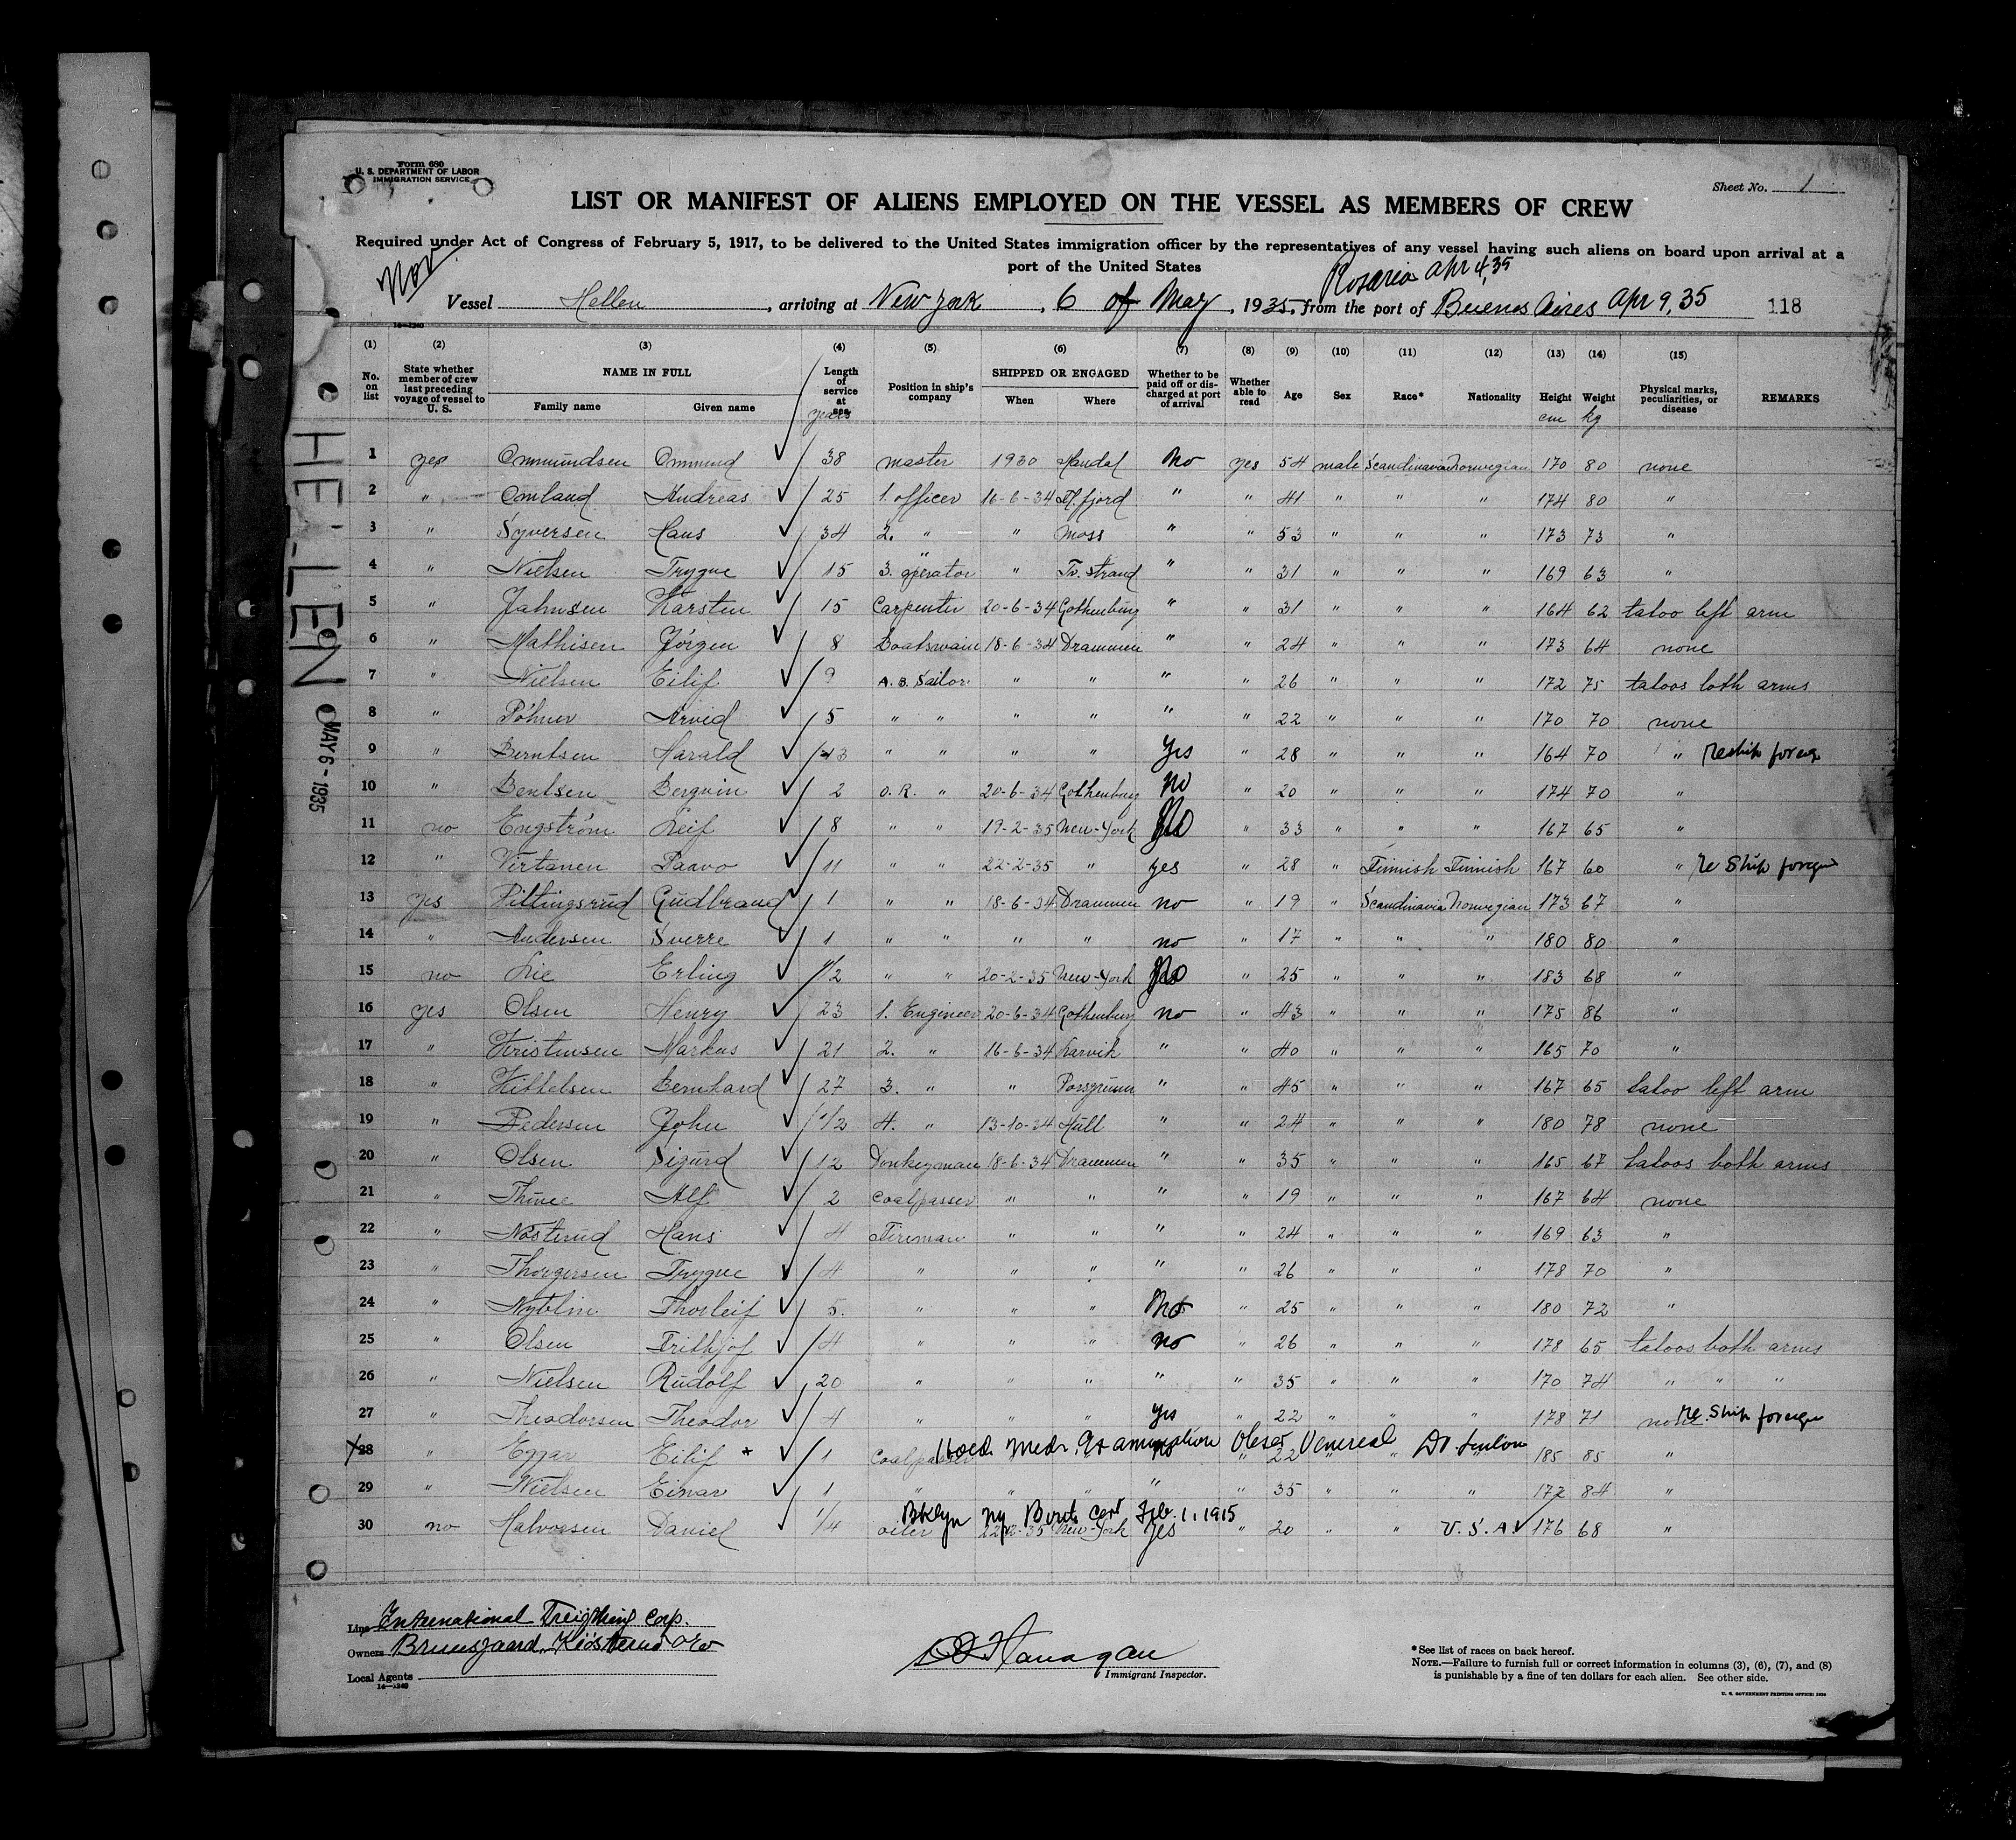 Form 680
U. S. DEPARTMENT OF LABOR
IMMIGRATION SERVICE
Sheet No. 1
LIST OR MANIFEST OF ALIENS EMPLOYED ON THE VESSEL AS MEMBERS OF CREW
Required under Act of Congress of February 5, 1917, to be delivered to the United States immigration officer by the representatives of any vessel having such aliens on board upon arrival at a
port of the United States
Nor
Rosario Apr 4, 35
Vessel Hellen, arriving at New York, 6 of May, 1935, from the port of Buenos Aires Apr 9, 35 118
14—1240
(1) (2) (3) (4) (5) (6) (7) (8) (9) (10) (11) (12) (13) (14) (15)
No. on list State whether member of crew last preceding voyage of vessel to U. S. NAME IN FULL Family name Given name Length of service at sea years Position in ship's company SHIPPED OR ENGAGED When Where Whether to be paid off or discharged at port of arrival Whether able to read Age Sex Race* Nationality Height cm Weight kg Physical marks, peculiarities, or disease REMARKS
1 yes Ommundsen Ommund 38 master 1930 Mandal No yes 54 male Scandinavian Norwegian 170 80 none
2 " Omland Andreas 25 1. officer 16-6-34 Fl.fjord " " 41 " " " 174 80 "
3 " Syversen Hans 34 2. " " Moss " " 53 " " " 173 73 "
4 " Nielsen Trygve 15 3. " operator " Tv. strand " " 31 " " " 169 63 "
5 " Jahnsen Karsten 15 Carpenter 20-6-34 Gothenburg " " 31 " " " 164 62 tatoo left arm
6 " Mathisen Jörgen 8 Boatswain 18-6-34 Drammen " " 24 " " " 173 64 none
7 " Nielsen Eilif 9 A. B. Sailor " " " " 26 " " " 172 75 tatoos both arms
8 " Pöhner Arvid 5 " " " " " " 22 " " " 170 70 none
9 " Berntsen Harald 13 " " " " Yes " 28 " " " 164 70 " Reship foreign
10 " Bentsen Bergvin 2 O. R. " 20-6-34 Gothenburg No " 20 " " " 174 70 "
11 no Engström Leif 8 " " 19-2-35 New-York No " 33 " " " 167 65 "
12 " Virtanen Paavo 11 " " 22-2-35 " yes " 28 " Finnish Finnish 167 60 " Re Ship foreign
13 yes Pittingsrud Gudbrand 1 " " 18-6-34 Drammen no " 19 " Scandinavia Norwegian 173 67 "
14 " Andersen Sverre 1 " " " " no " 17 " " " 180 80 "
15 no Lie Erling 1/2 " " 20-2-35 New-York No " 25 " " " 183 68 "
16 yes Olsen Henry 23 1. Engineer 20-6-34 Gothenburg no " 43 " " " 175 86 "
17 " Kristensen Markus 21 2. " 16-6-34 Larvik " " 40 " " " 165 70 "
18 " Kittelsen Bernhard 27 3. " " Porsgrunn " " 45 " " " 167 65 tatoo left arm
19 " Pedersen John 1/2 4. " 13-10-34 Hull " " 24 " " " 180 78 none
20 " Olsen Sigurd 12 Donkeyman 18-6-34 Drammen " " 35 " " " 165 67 tatoos both arms
21 " Thune Alf 2 Coalpasser " " " " 19 " " " 167 64 none
22 " Nosterud Hans 4 Fireman " " " " 24 " " " 169 63 "
23 " Thorgersen Trygve 4 " " " " " 26 " " " 178 70 "
24 " Nyblin Thorleif 5. " " " No " 25 " " " 180 72 "
25 " Olsen Frithjof 4 " " " no " 26 " " " 178 65 tatoos both arms
26 " Nielsen Rudolf 20 " " " " " 35 " " " 170 74 " " "
27 " Theodorsen Theodor 4 " " " Yes " 22 " " " 178 71 none Re. Ship foreign
Med. Examination Obser Venereal Dr.
X 28 " Eggar Eilif * 1 Coalpasser " 22 " " " 185 85 "
29 " Nielsen Einar 1 " " " " " 35 " " " 172 84 "
Bklyn Ny Birth Cert Feb. 1. 1915
30 no Halvorsen Daniel 1/4 oiler 22-2-35 New-York Yes " 20 " " U. S. A. 176 68 "
HELLEN
MAY 6 - 1935
Line International Freighting Corp.
Owners Bruusgaard, Kiösterud
Local Agents
14—1240
Flanagan
Immigrant Inspector.
*See list of races on back hereof.
NOTE.—Failure to furnish full or correct information in columns (3), (6), (7), and (8)
is punishable by a fine of ten dollars for each alien. See other side.
U. S. GOVERNMENT PRINTING OFFICE: 1930